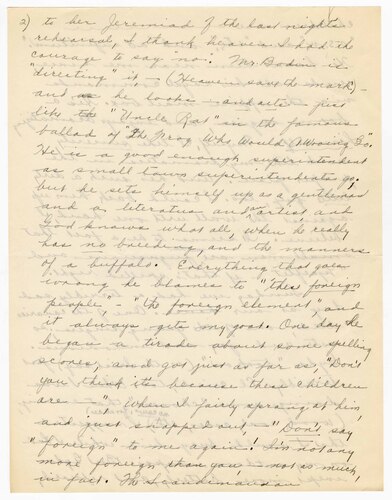 2) to her Jeremiad of the last night's
rehearsal, I thank heaven I had the
courage to say "no." Mr. Bodwin is
"directing" it, - (Heaven save the mark) -
and he looks - and acts - just
like "Uncle Rat" in the famous
ballad of "The Frog Who Would A Wooing Go".
He is a good enough superintendent
as small town superintendents go,
but he sets himself up as a gentleman
and a literateur and artist and
God knows what all, when he really
has no breeding, and the manners
of a buffalo. Everything that goes
wrong he blames to "these foreign
people", - "the foreign element", and
it always gets my goat. One day he
began a tirade about some spelling
scores, and got just as far as, "Don't
you think it's because these children
are -" when I fairly sprang at him,
and just snapped out - "Don't say
"foreign" to me again! I'm not any
more foreign than you - not as much,
in fact. The Scandinavian